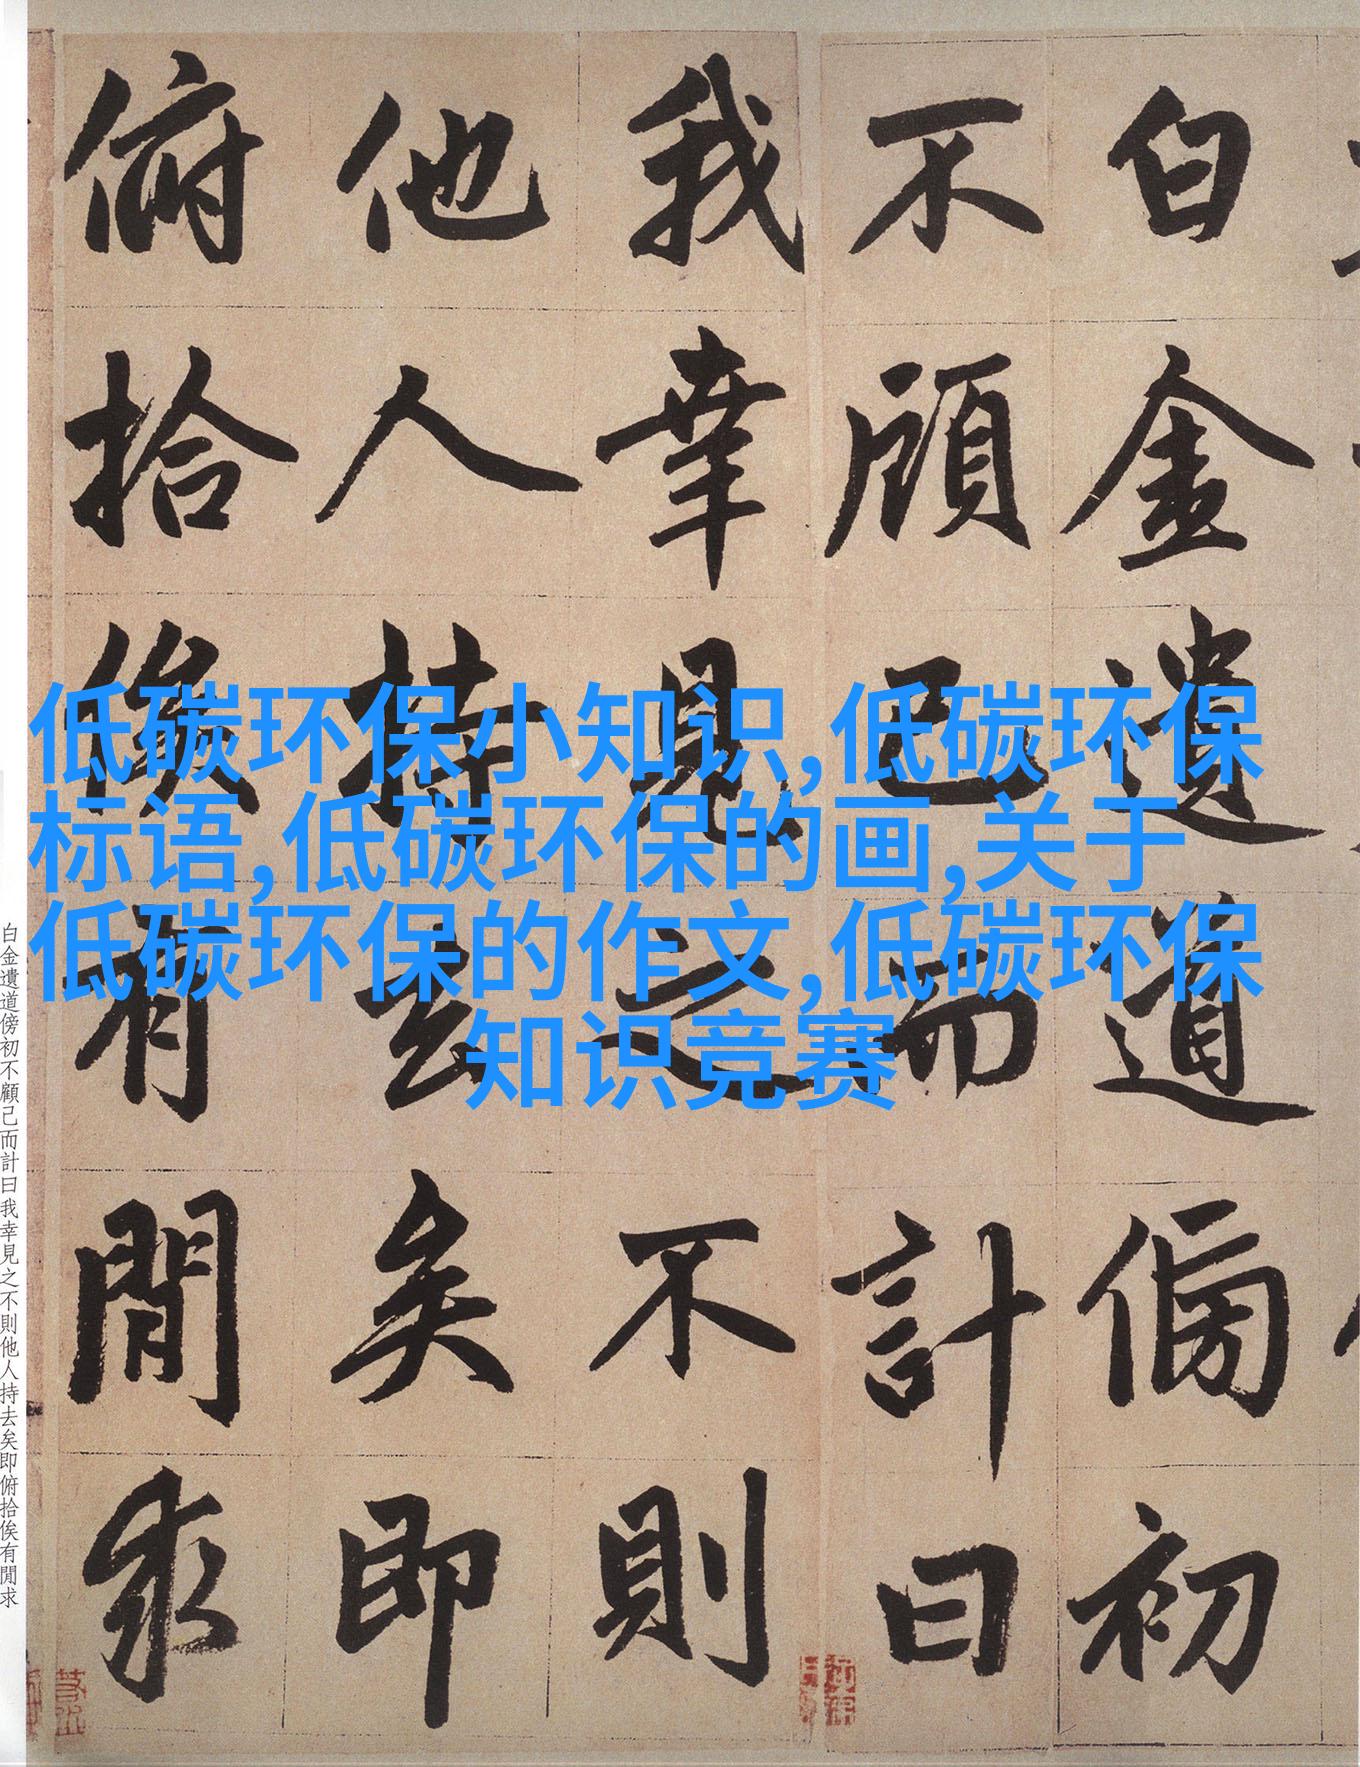 白金遺道傍初
不顧己而計曰
我幸見之不則
他人持去矣即
俯拾俟有閒求
低碳环保小知识,低碳环保
标语,低碳环保的画,关于
低碳环保的作文,低碳环保
知识竞赛
白金遺道傍初不顧己而計曰我幸見之不則他人持去矣即俯拾俟有閒求